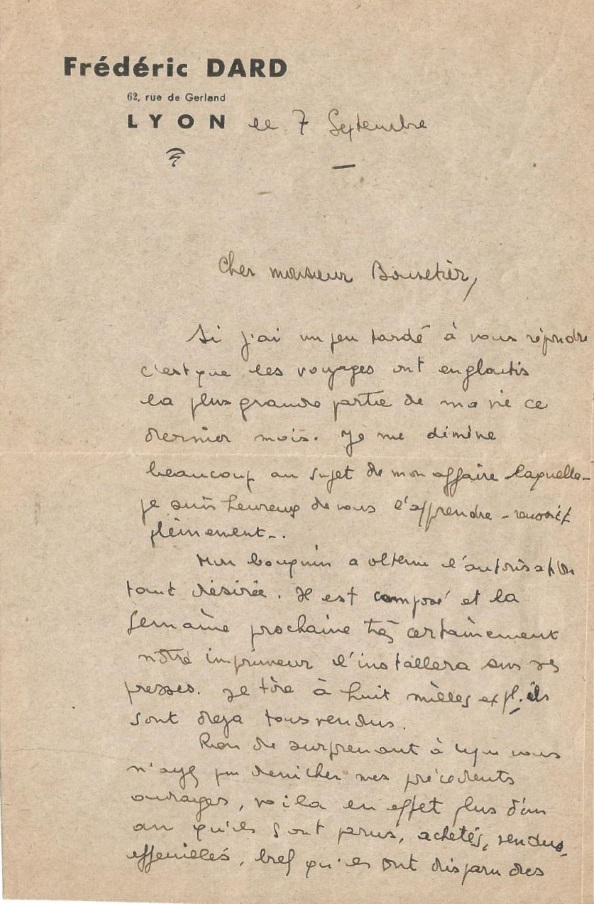 Frédéric DARD
62, rue de Gerland
LYON le 7 Septembre
Cher monsieur
Si j'ai un peu tardé à vous répondre
c'est que les voyages ont engloutis
la plus grande partie de ma vie ce
dernier mois. Je me démène
beaucoup au sujet de mon affaire laquelle -
je suis heureux de vous l'apprendre - réussit
pleinement..
Mon bouquin a obtenu l'autorisation
tant désirée. Il est composé et la
semaine prochaine très certainement
notre imprimeur l'installera sur ses
presses. Je tire à huit milles expl. ils
sont déjà tous vendus.
Rien de surprenant à ce que vous
n'ayez pu dénicher mes précédents
ouvrages, voila en effet plus d'un
an qu'ils sont parus, achetés, vendus,
effeuillés, bref qu'ils ont disparu des